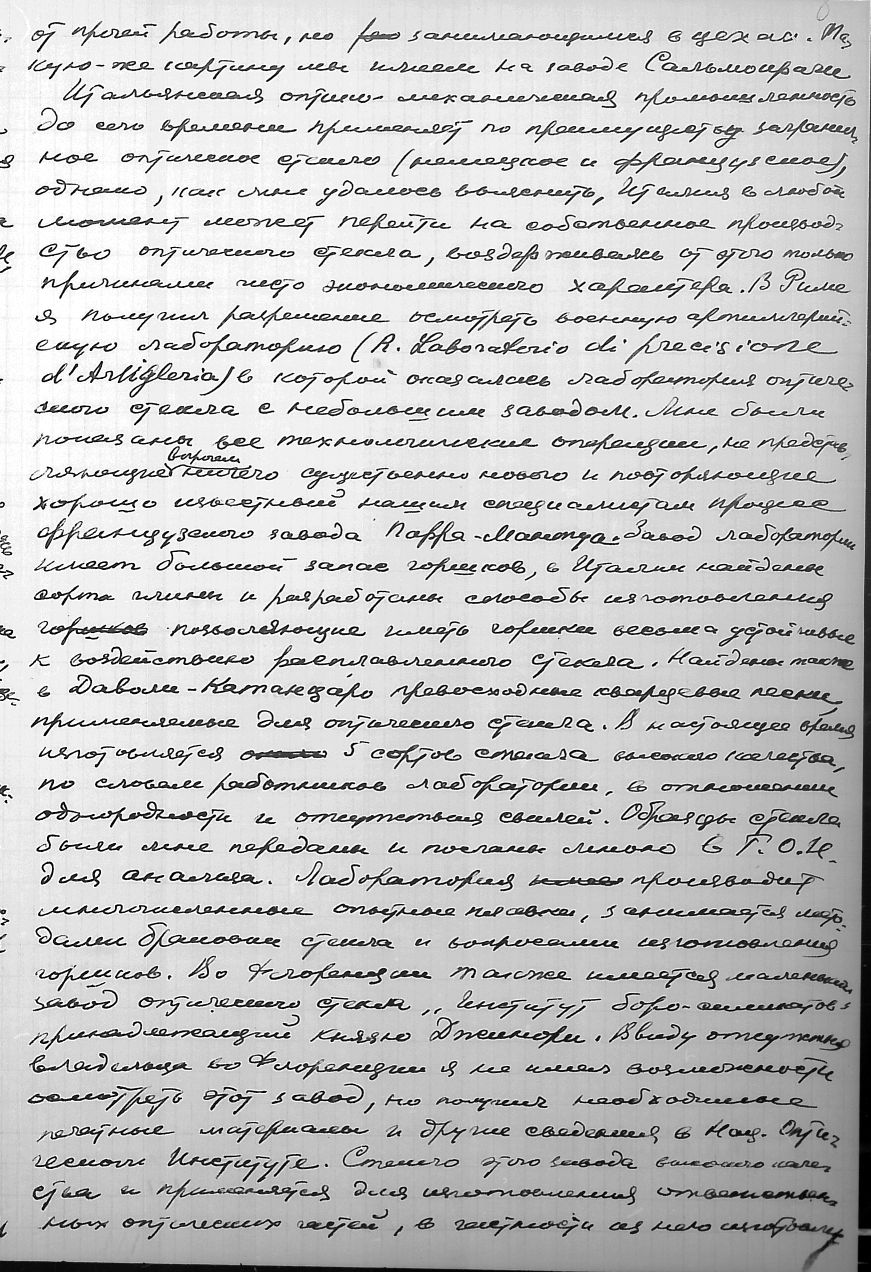 от прочей работы, но занимающимися в цехах. Та-
кую-же картину мы имеем на заводе Сальмойраги
Итальянская оптико-механическая промышленность
до сего времени применяет по преимуществу загранич-
ное оптическое стекло (немецкое и французское),
однако, как мне удалось выяснить, Италия в любой
момент может перейти на собственное производ-
ство оптического стекла, воздерживаясь от этого только
причинами чисто экономического характера. В Риме
я получил разрешение осмотреть военную артиллерий-
скую лабораторию (R. Laboratorio di precisione
d'Artiglieria) в которой оказалась лаборатория оптиче-
ского стекла с небольшим заводом. Мне были
показаны все технологические операции, не представ-
ляющие впрочем ничего существенно нового и повторяющие
хорошо известный нашим специалистам процесс
французского завода Парра-Мантуа. Завод лаборатории
имеет большой запас горшков, в Италии найдены
сорта глины и разработаны способы изготовления
горшков позволяющие иметь горшки весьма устойчивые
к воздействию расплавленного стекла. Найдены также
в Даволи-Катанцаро превосходные кварцевые пески,
применяемые для оптического стекла. В настоящее время
изготовляется около 5 сортов стекла высокого качества,
по словам работников лаборатории, в отношении
однородности и отсутствия свилей. Образцы стекла
были мне переданы и посланы мною в Г.О.И.
для анализа. Лаборатория производит
многочисленные опытные плавки, занимается мето-
дами браковки стекла и вопросами изготовления
горшков. Во Флоренции также имеется маленький
завод оптического стекла „Институт боро-силикатов"
принадлежащий князю Джинори. Ввиду отсутствия
владельца во Флоренции я не имел возможности
осмотреть этот завод, но получил необходимые
печатные материалы и другие сведения в Нац. Опти-
ческом Институте. Стекло этого завода высокого каче-
ства и применяется для изготовления ответствен-
ных оптических частей, в частности из него изготовлу